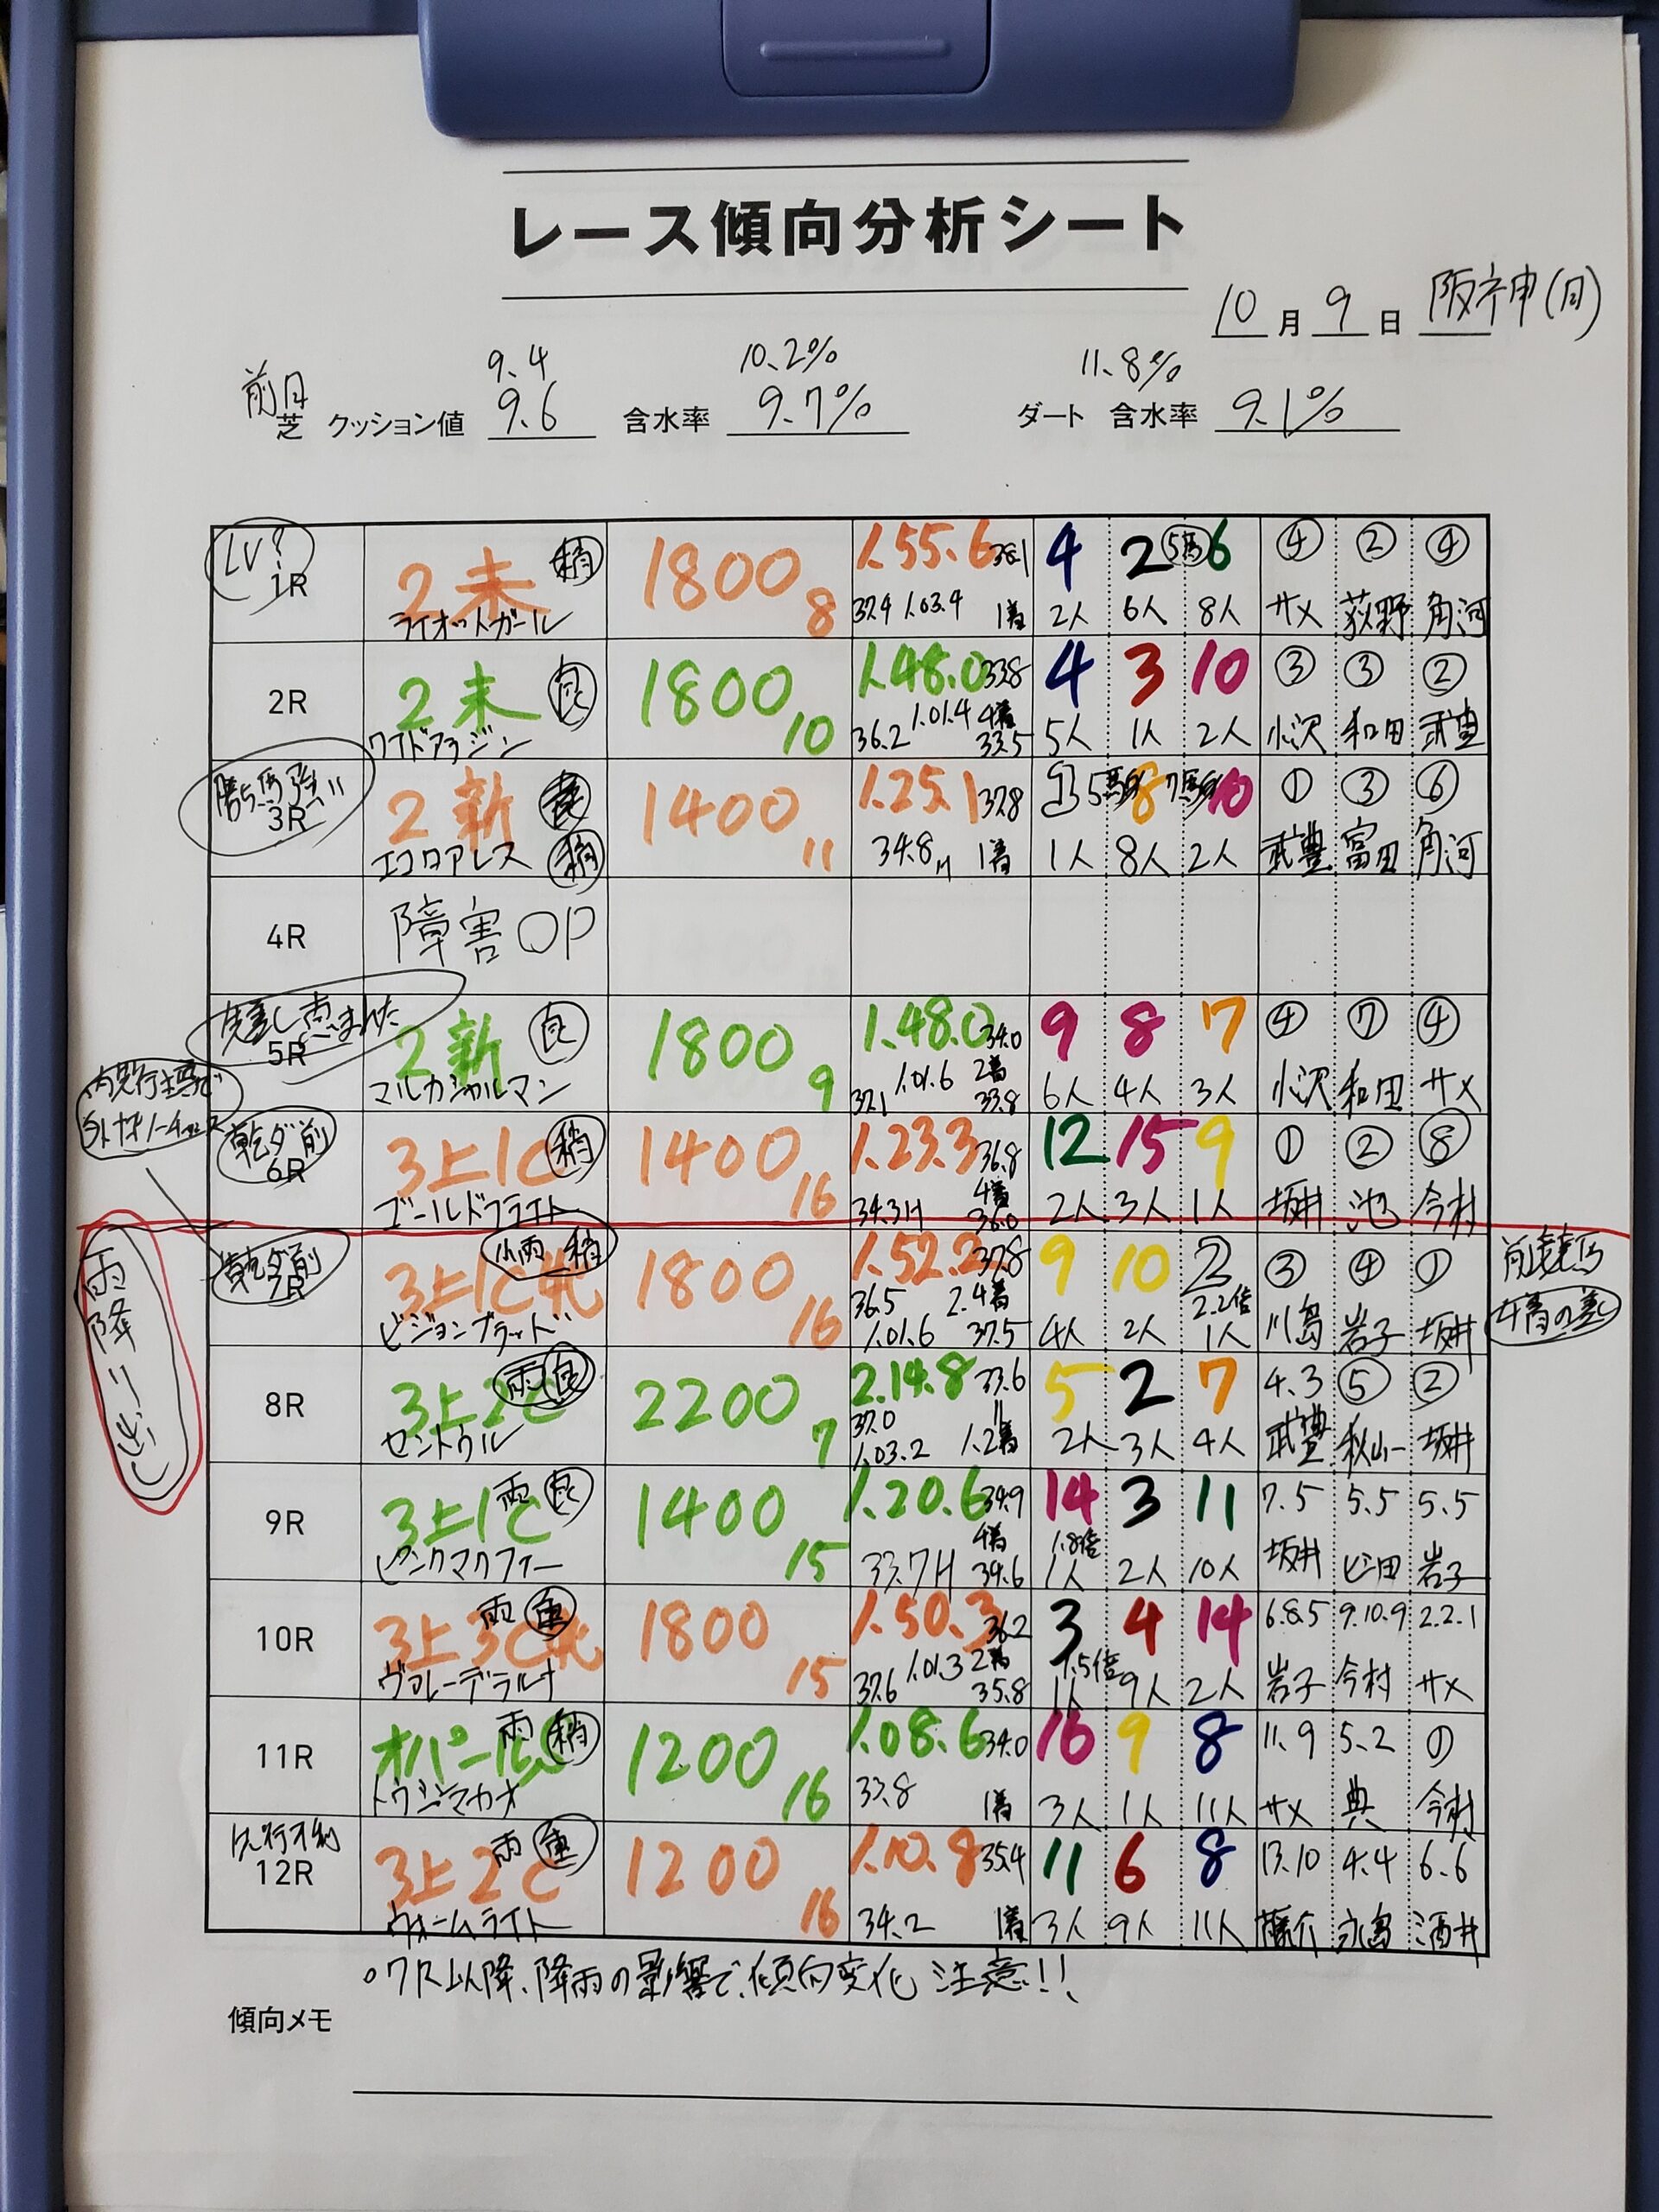 レース傾向分析シート
10月9日 阪神(月)
9.4 10.2% 11.8%
前日
芝 クッション値 9.6 含水率 9.7% ダート 含水率 9.1%
LV?
1R 2未 稍 1800 8 1.55.6 38.1 4 2 5馬 6 ④ ② ④
ライオットガール 37.4 1.03.4 1着 2人 6人 8人 サメ 荻野 角河
2R 2未 良 1800 10 1.48.0 33.8 4 3 10 ③ ③ ②
ワイドアラジン 36.2 1.01.4 4着 33.5 5人 1人 2人 小沢 和田 武豊
勝ち馬強!!
3R 2新 稍 1400 11 1.25.1 37.8 1 5馬身 8 7馬身 10 ① ③ ⑥
エコロアレス 34.8M 1着 1人 8人 2人 武豊 富田 角河
4R 障害OP
差し恵まれた
5R 2新 良 1800 9 1.48.0 34.0 9 8 7 ④ ⑦ ④
マルカシャルマン 37.1 1.01.6 2着 33.8 6人 4人 3人 小沢 和田 サメ
乾ダ前
6R 3上1C 稍 1400 16 1.23.3 36.8 12 15 9 ① ② ⑧
ゴールドブライト 34.3H 4着 36.0 2人 3人 1人 坂井 池 今村
雨降り出し
乾ダ前
7R 3上1C 小雨 稍 1800 16 1.52.2 37.8 9 10 2 ③ ④ ①
ビジョンブラッド 36.5 2.4着 1.01.6 37.5 4人 2人 2.2倍 1人 川島 岩子 坂井
前競馬
4角の差し
8R 3上2C 雨 良 2200 7 2.14.8 33.6 5 2 7 4.3 ⑤ ②
セントウル 37.0 1.03.2 1.2着 2人 3人 4人 武豊 秋山一 坂井
9R 3上1C 雨 良 1400 15 1.20.6 34.9 14 3 11 7.5 5.5 5.5
ピンクマクフィー 33.7H 4着 34.6 1.8倍 1人 2人 10人 坂井 ビ田 岩子
10R 3上3C 雨 重 1800 15 1.50.3 36.2 3 4 14 6.8.5 9.10.9 2.2.1
ヴァレーデラルナ 37.6 1.01.3 2着 35.8 1.5倍 1人 9人 2人 岩子 今村 サメ
11R オパールS 雨 稍 1200 16 1.08.6 34.0 16 9 8 11.9 5.2 ①
トウシンマカオ 33.8 1着 3人 1人 11人 サメ 典 今村
先行不利
12R 3上2C 雨 重 1200 16 1.10.8 35.4 11 6 8 13.10 4.4 6.6
ウォームライト 34.2 1着 3人 9人 11人 藤介 永島 酒井
○7R以降、降雨の影響で、傾向変化 注意!!
傾向メモ